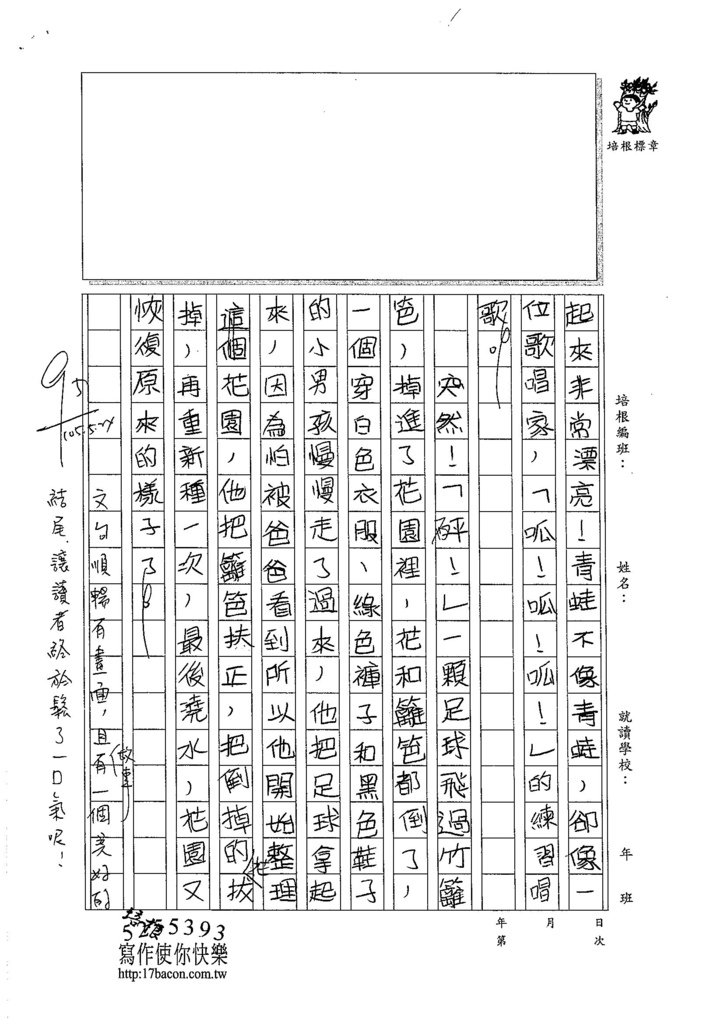 培根標章
培根編班：
姓名：
就讀學校：
年 班
年 月 日
第 次
起來非常漂亮！青蛙不像青蛙，卻像一
位歌唱家，「呱！呱！呱！」的練習唱
歌。
突然！「砰！」一顆足球飛過竹籬
笆，掉進了花園裡，花和籬笆都倒了，
一個穿白色衣服、綠色褲子和黑色鞋子
的小男孩慢慢走了過來，他把足球拿起
來，因為怕被爸爸看到所以他開始整理
這個花園，他把籬笆扶正，把倒掉的花拔
掉，再重新種一次，最後澆水，花園又
恢復原來的樣子了。
文句順暢有畫面，且故事有一個美好的
結尾，讓讀者終於鬆了一口氣呢！
95
105.5.24
5255393
寫作使你快樂
http:17bacon.com.tw